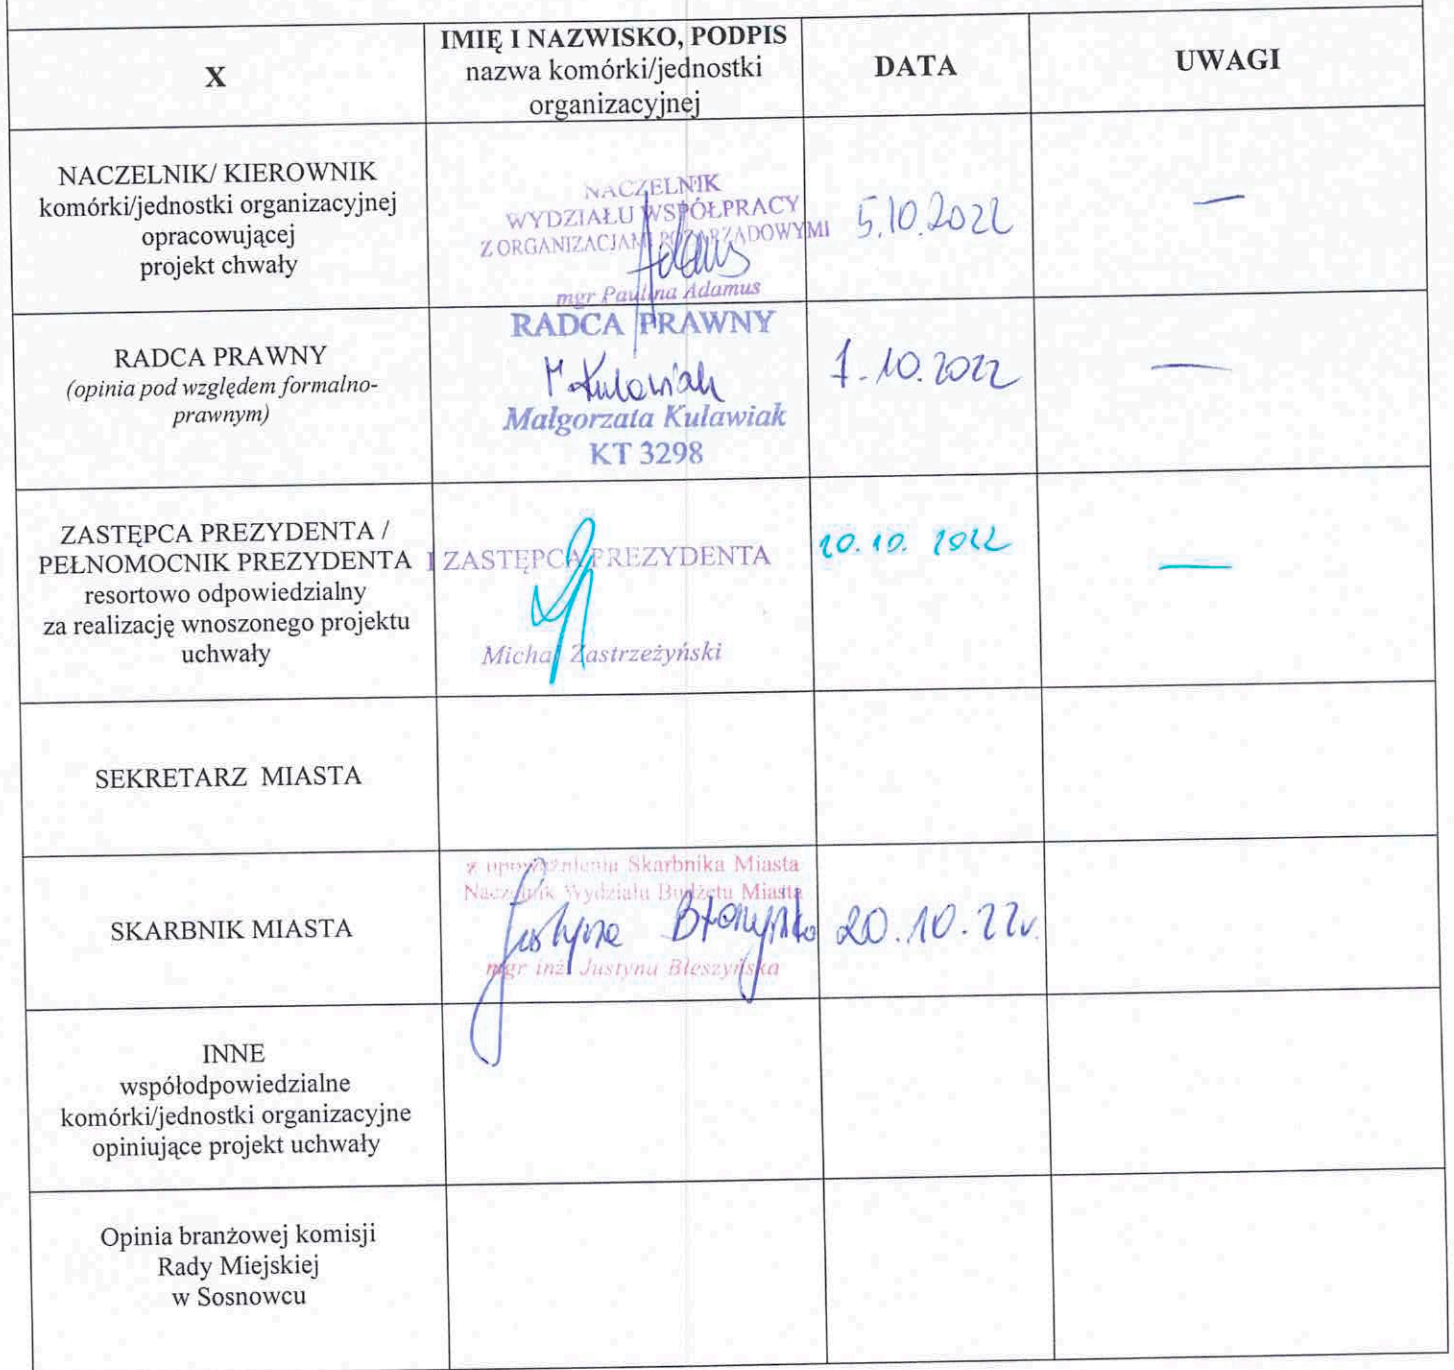 X
IMIĘ I NAZWISKO, PODPIS
nazwa komórki/jednostki
organizacyjnej
DATA
UWAGI
NACZELNIK/ KIEROWNIK
komórki/jednostki organizacyjnej
opracowującej
projekt chwały
NACZELNIK
WYDZIAŁU WSPÓŁPRACY
Z ORGANIZACJAMI POZARZĄDOWYMI
Adamus
mgr Paulina Adamus
5.10.2022
—
RADCA PRAWNY
(opinia pod względem formalno-
prawnym)
RADCA PRAWNY
M. Kulawiak
Małgorzata Kulawiak
KT 3298
7.10.2022
—
ZASTĘPCA PREZYDENTA /
PEŁNOMOCNIK PREZYDENTA
resortowo odpowiedzialny
za realizację wnoszonego projektu
uchwały
I ZASTĘPCA PREZYDENTA
Michał Zastrzeżyński
10.10.2022
—
SEKRETARZ MIASTA
SKARBNIK MIASTA
z upoważnienia Skarbnika Miasta
Naczelnik Wydziału Budżetu Miasta
Justyna Błeszyńska
mgr inż. Justyna Błeszyńska
20.10.22r.
INNE
współodpowiedzialne
komórki/jednostki organizacyjne
opiniujące projekt uchwały
Opinia branżowej komisji
Rady Miejskiej
w Sosnowcu